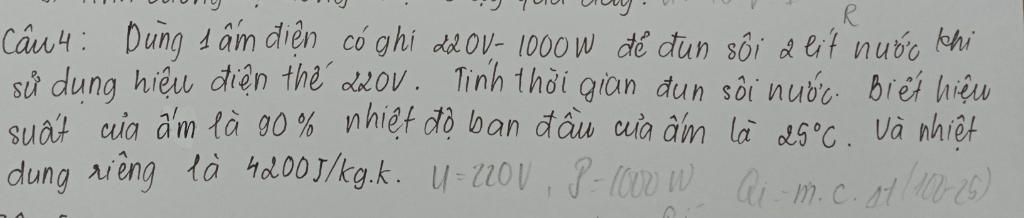 R
Câu 4: Dùng 1 ấm điện có ghi 220V- 1000W để đun sôi 2 lít nước khi
sử dụng hiệu điện thế 220V. Tính thời gian đun sôi nước. Biết hiệu
suất của ấm là 90% nhiệt độ ban đầu của ấm là 25°C. Và nhiệt
dung riêng là 4200J/kg.k. U=220V, P=1000W Qi=m.c.Δt(100-25)